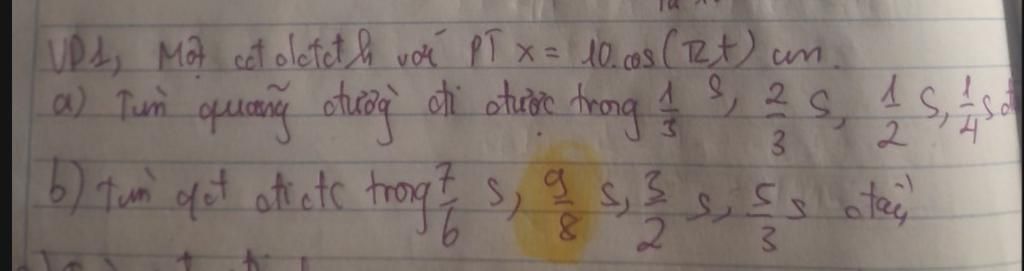 VD1, Một cđ dđđh với PT x = 10.cos(πt) cm.
a) Tìm quãng đường đi được trong 1/3 s, 2/3 s, 1/2 s, 1/4 s đ
b) Tìm qđ đi đc trong 7/6 s, 9/8 s, 3/2 s, 5/3 s đầu